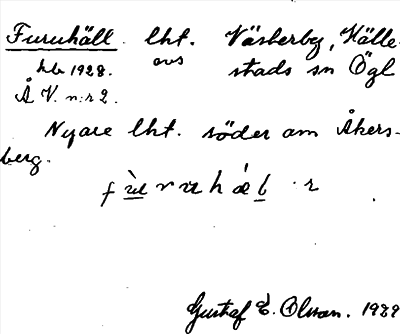 Furuhäll lht. Västerby, Hälle-
hb 1928. avs stads sn Ögl
Å V. n:r 2.
Nyare lht. söder om Åkers-
berg.
Gustaf E. Olsson. 1929